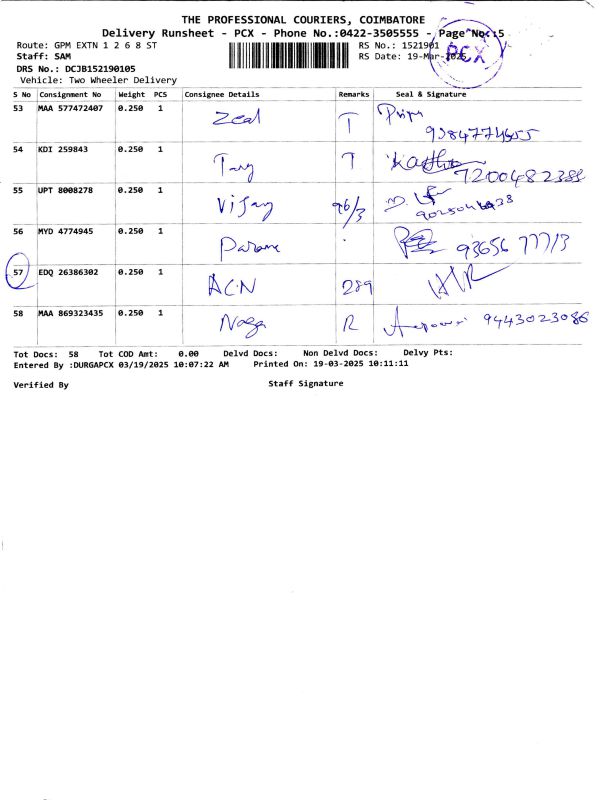 THE PROFESSIONAL COURIERS, COIMBATORE
Delivery Runsheet - PCX - Phone No.:0422-3505555 - Page No.:5
Route: GPM EXTN 1 2 6 8 ST
RS No.: 1521901
Staff: SAM
RS Date: 19-Mar-2025
PCX
DRS No.: DCJB152190105
Vehicle: Two Wheeler Delivery
S No Consignment No Weight PCS Consignee Details Remarks Seal & Signature
53 MAA 577472407 0.250 1 Zeal T Priya
9384774655
54 KDI 259843 0.250 1 T
7200482388
55 UPT 8008278 0.250 1 Vijay 96/3
56 MYD 4774945 0.250 1 Param 93656 77713
57 EDQ 26386302 0.250 1 ACN 289
58 MAA 869323435 0.250 1 Naga R 9443023086
Tot Docs: 58 Tot COD Amt: 0.00 Delvd Docs: Non Delvd Docs: Delvy Pts:
Entered By :DURGAPCX 03/19/2025 10:07:22 AM Printed On: 19-03-2025 10:11:11
Verified By Staff Signature